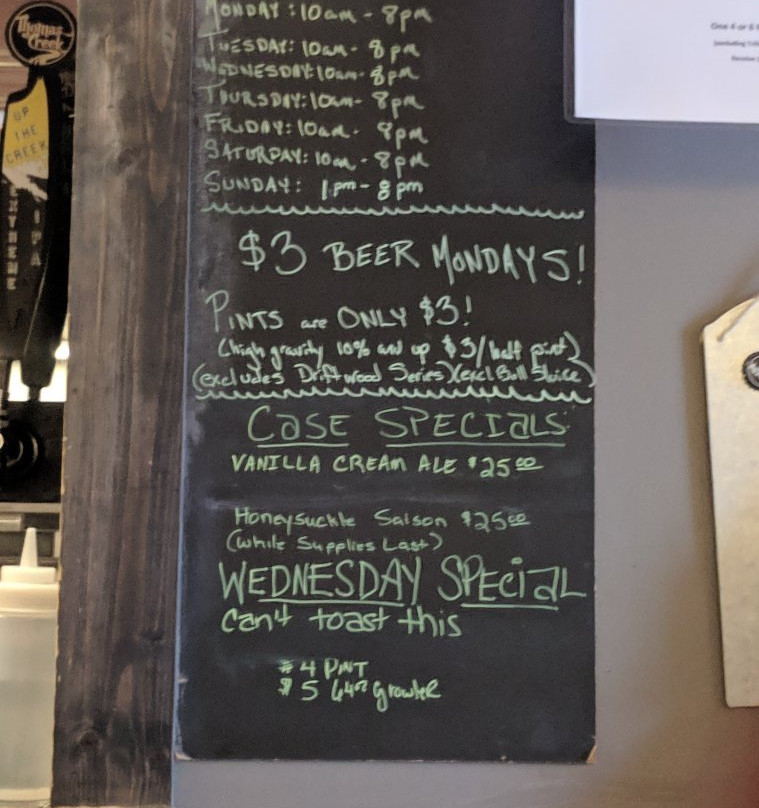 Thomas
Creek
UP
THE
CREEK
EXTREME
IPA
MONDAY: 10am - 8pm
TUESDAY: 10am - 8pm
WEDNESDAY: 10am - 8pm
THURSDAY: 10am - 8pm
FRIDAY: 10am - 8pm
SATURDAY: 10am - 8pm
SUNDAY: 1pm - 8pm
$3 BEER MONDAYS!
PINTS are ONLY $3!
(high gravity 10% and up $3/half pint)
(excludes Driftwood Series)(excl Bull Sluice)
CASE SPECIALS
VANILLA CREAM ALE $25.00
Honeysuckle Saison $25.00
(While Supplies Last)
WEDNESDAY SPECIAL
can't toast this
$4 PINT
$5 64oz Growler
One 4 or 6